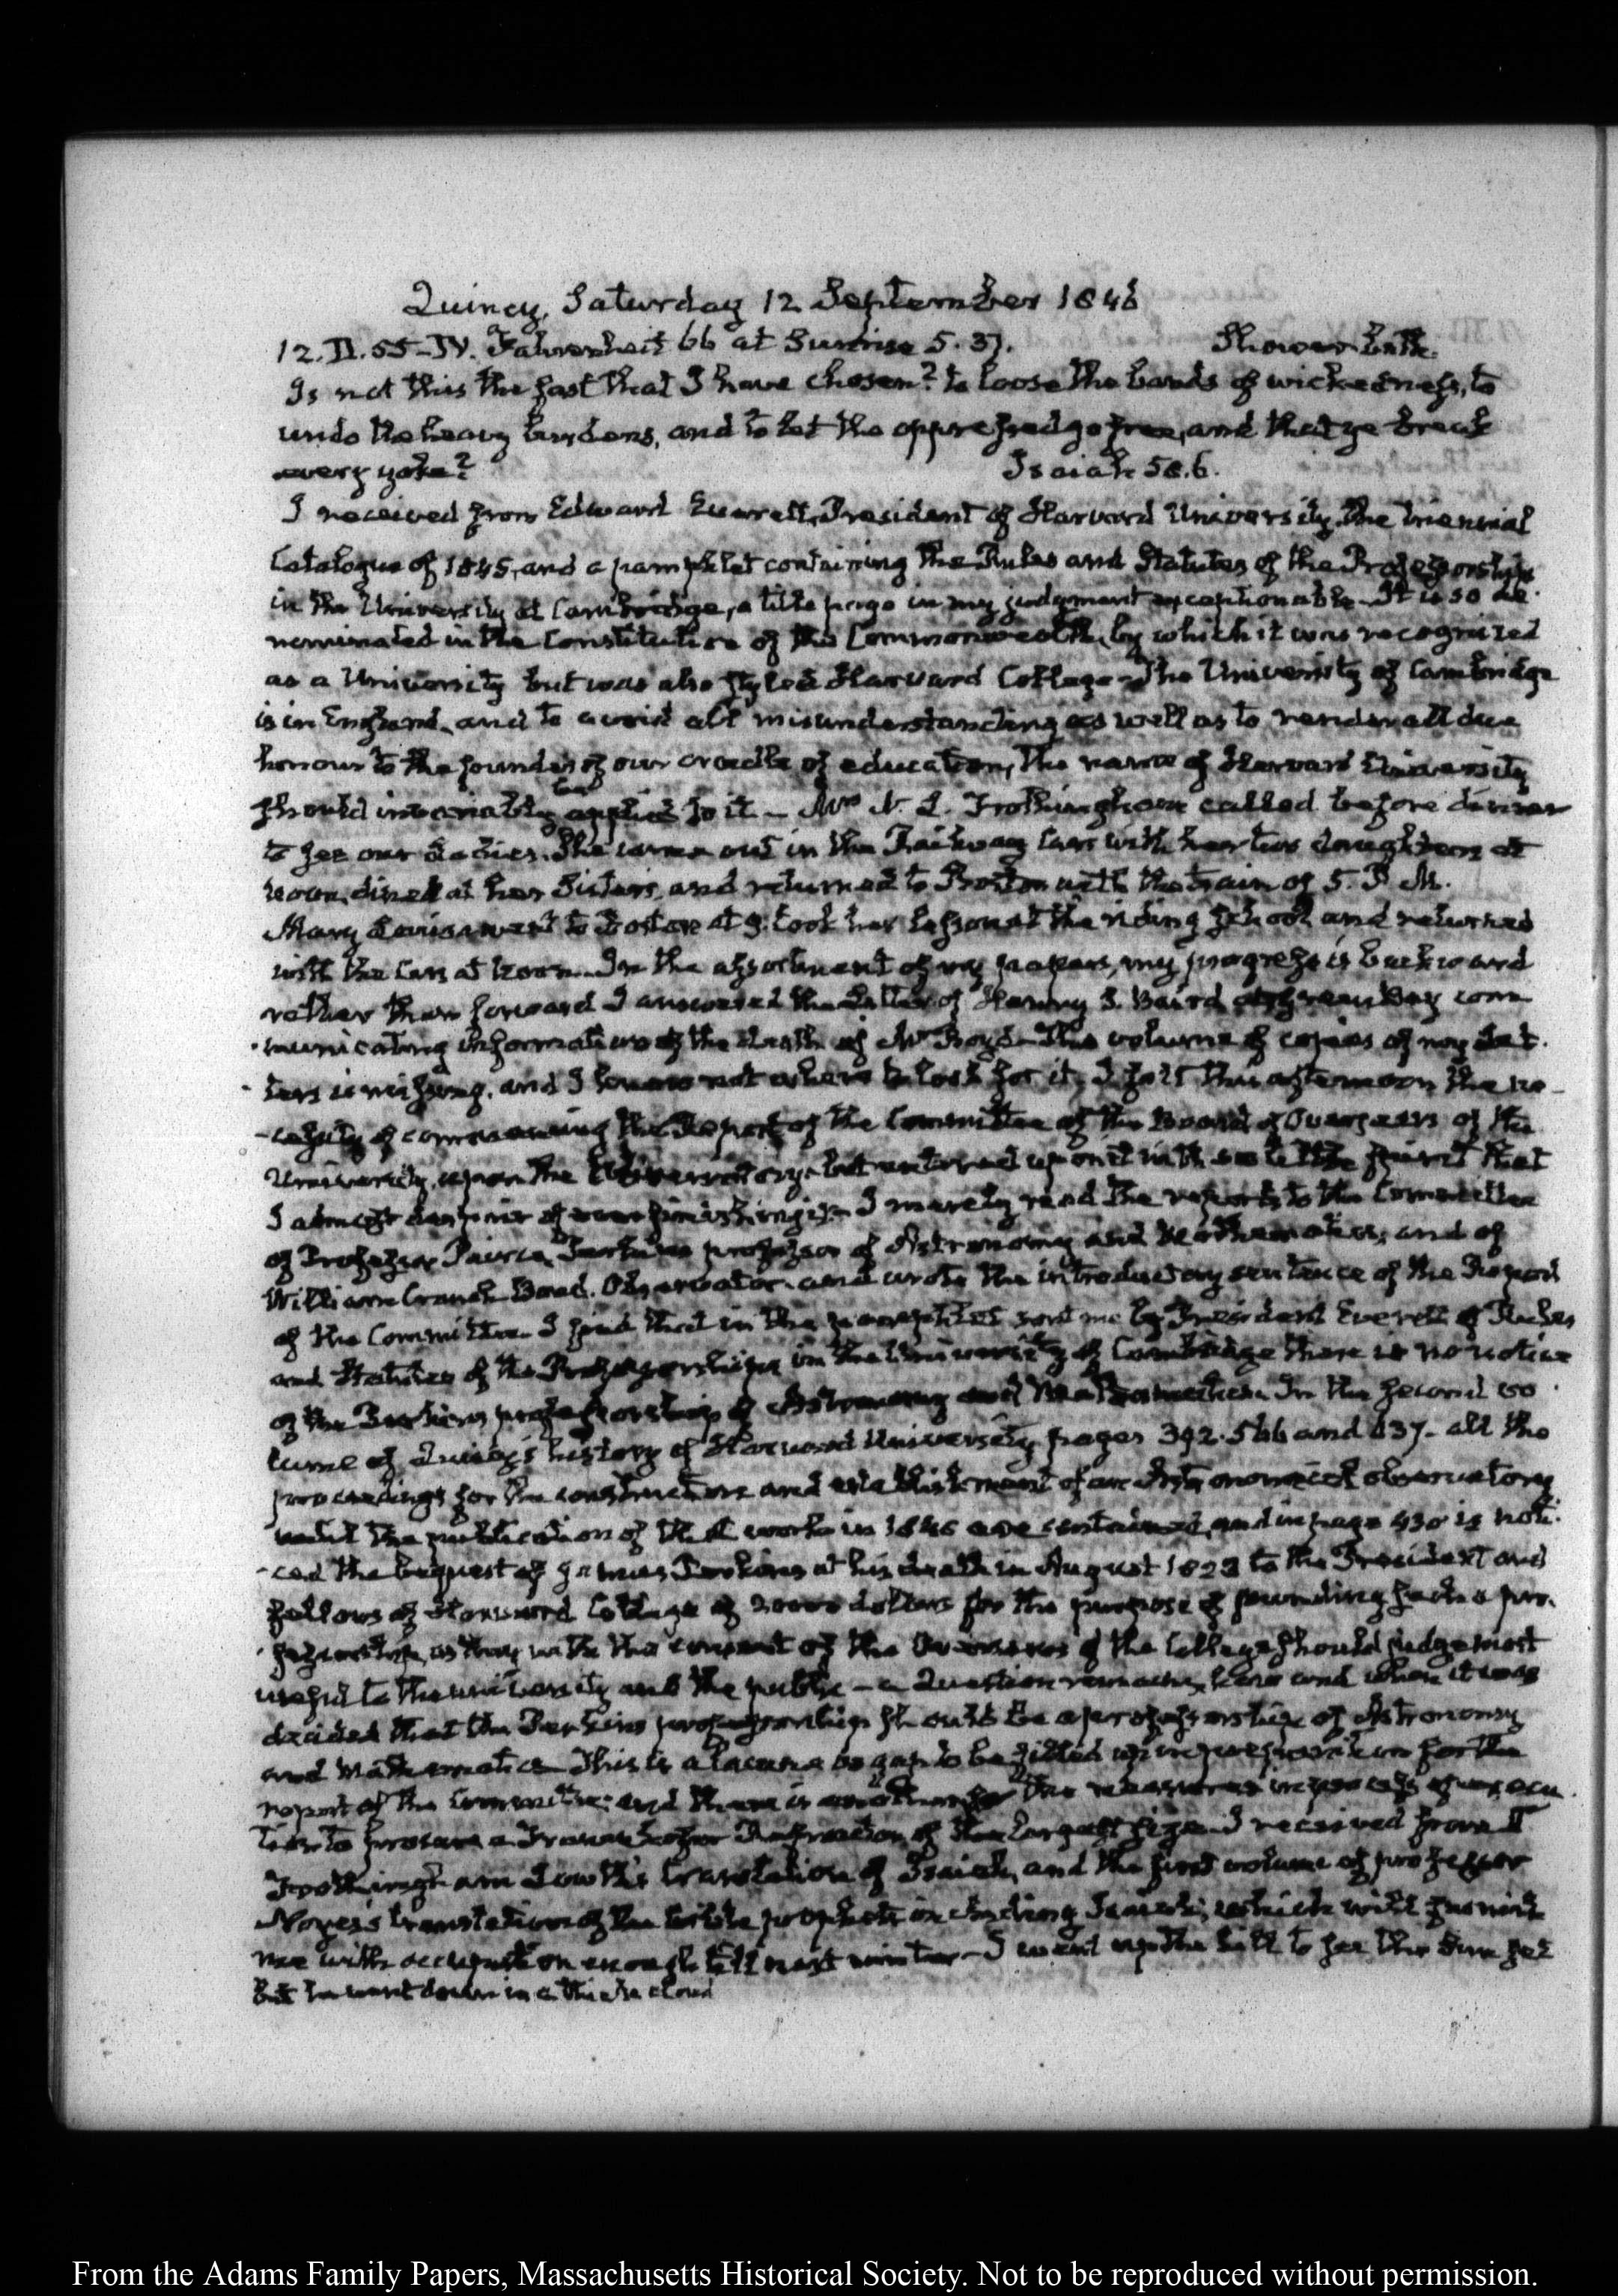 Quincy, Saturday 12 September 1846
12. II. 55–IV. Fahrenheit 66 at Sunrise 5. 37. Shower bath.
Is not this the fast that I have chosen? to loose the bands of wickedness, to
undo the heavy burdens, and to let the oppressed go free, and that ye break
every yoke? Isaiah 58.6.
I received from Edward Everett, President of Harvard University, the triennial
Catalogue of 1845, and a pamphlet containing the Rules and Statutes of the Professorships
in the University at Cambridge, a title page in my judgment exceptionable. It is so de-
nominated in the Constitution of this Commonwealth, by which it was recognized
as a University but was also styled Harvard College. The University of Cambridge
is in England, and to avoid all misunderstanding as well as to render all due
honour to the founder of our cradle of education, the name of Harvard University
should invariably be applied to it – Mrs N. L. Frothingham called before dinner
to see our ladies. She came out in the Railway Cars with her two daughters at
noon, dined at her Sister's, and returned to Boston with the train of 5. P.M.
Mary Louisa went to Boston at 9. took her lesson at the riding school and returned
with the Cars at noon. In the assortment of my papers, my progress is backward
rather than forward I answered the Letter of Henry S. Baird at Green Bay com-
municating information of the death of Mr Boyd – The volume of copies of my Let-
ters is missing, and I know not where to look for it, I felt this afternoon the ne-
-cessity of commencing the Report of the Committee of the Board of Overseers of the
University, upon the Observatory – but entered upon it with so little spirit that
I almost despair of ever finishing it – I merely read the reports to the Committee
of Professor Peirce, Perkins professor of Astronomy and Mathematics, and of
William Cranch Bond, Observator, and wrote the introductory sentence of the Report
of the Committee. I find that in the pamphlet sent me by President Everett of Rules
and Statutes of the Professorships in the University of Cambridge there is no notice
of the Perkins professorship of Astronomy and Mathematics. In the second vo-
lume of Quincy's history of Harvard University, pages 392. 566 and 437 – all the
proceedings for the construction and establishment of an Astronomical observatory
until the publication of that work in 1840 are contained, and in page 430 is noti-
-ced the bequest of James Perkins at his death in August 1822 to the President and
fellows of Harvard College of 20000 dollars for the purpose of founding such a pro-
-fessorship, as they with the consent of the Overseers of the College should judge most
useful to the university and the public – a Question remains, how and when it was
decided that the Perkins professorship should be a professorship of Astronomy
and Mathematics – This is a lacuna or gap to be filled up in preparation for the
report of the Committee; and there is another for the measures in process of execu-
tion to procure a Fraunhofer Refractor of the largest size – I received from Dr
Frothingham Lowth's translation of Isaiah, and the first volume of professor
Noyes's translation of the bible prophets including Isaiah, which will furnish
me with occupation enough till next winter – I went up the hill to see the Sun set
but he went down in a thick cloud
From the Adams Family Papers, Massachusetts Historical Society. Not to be reproduced without permission.